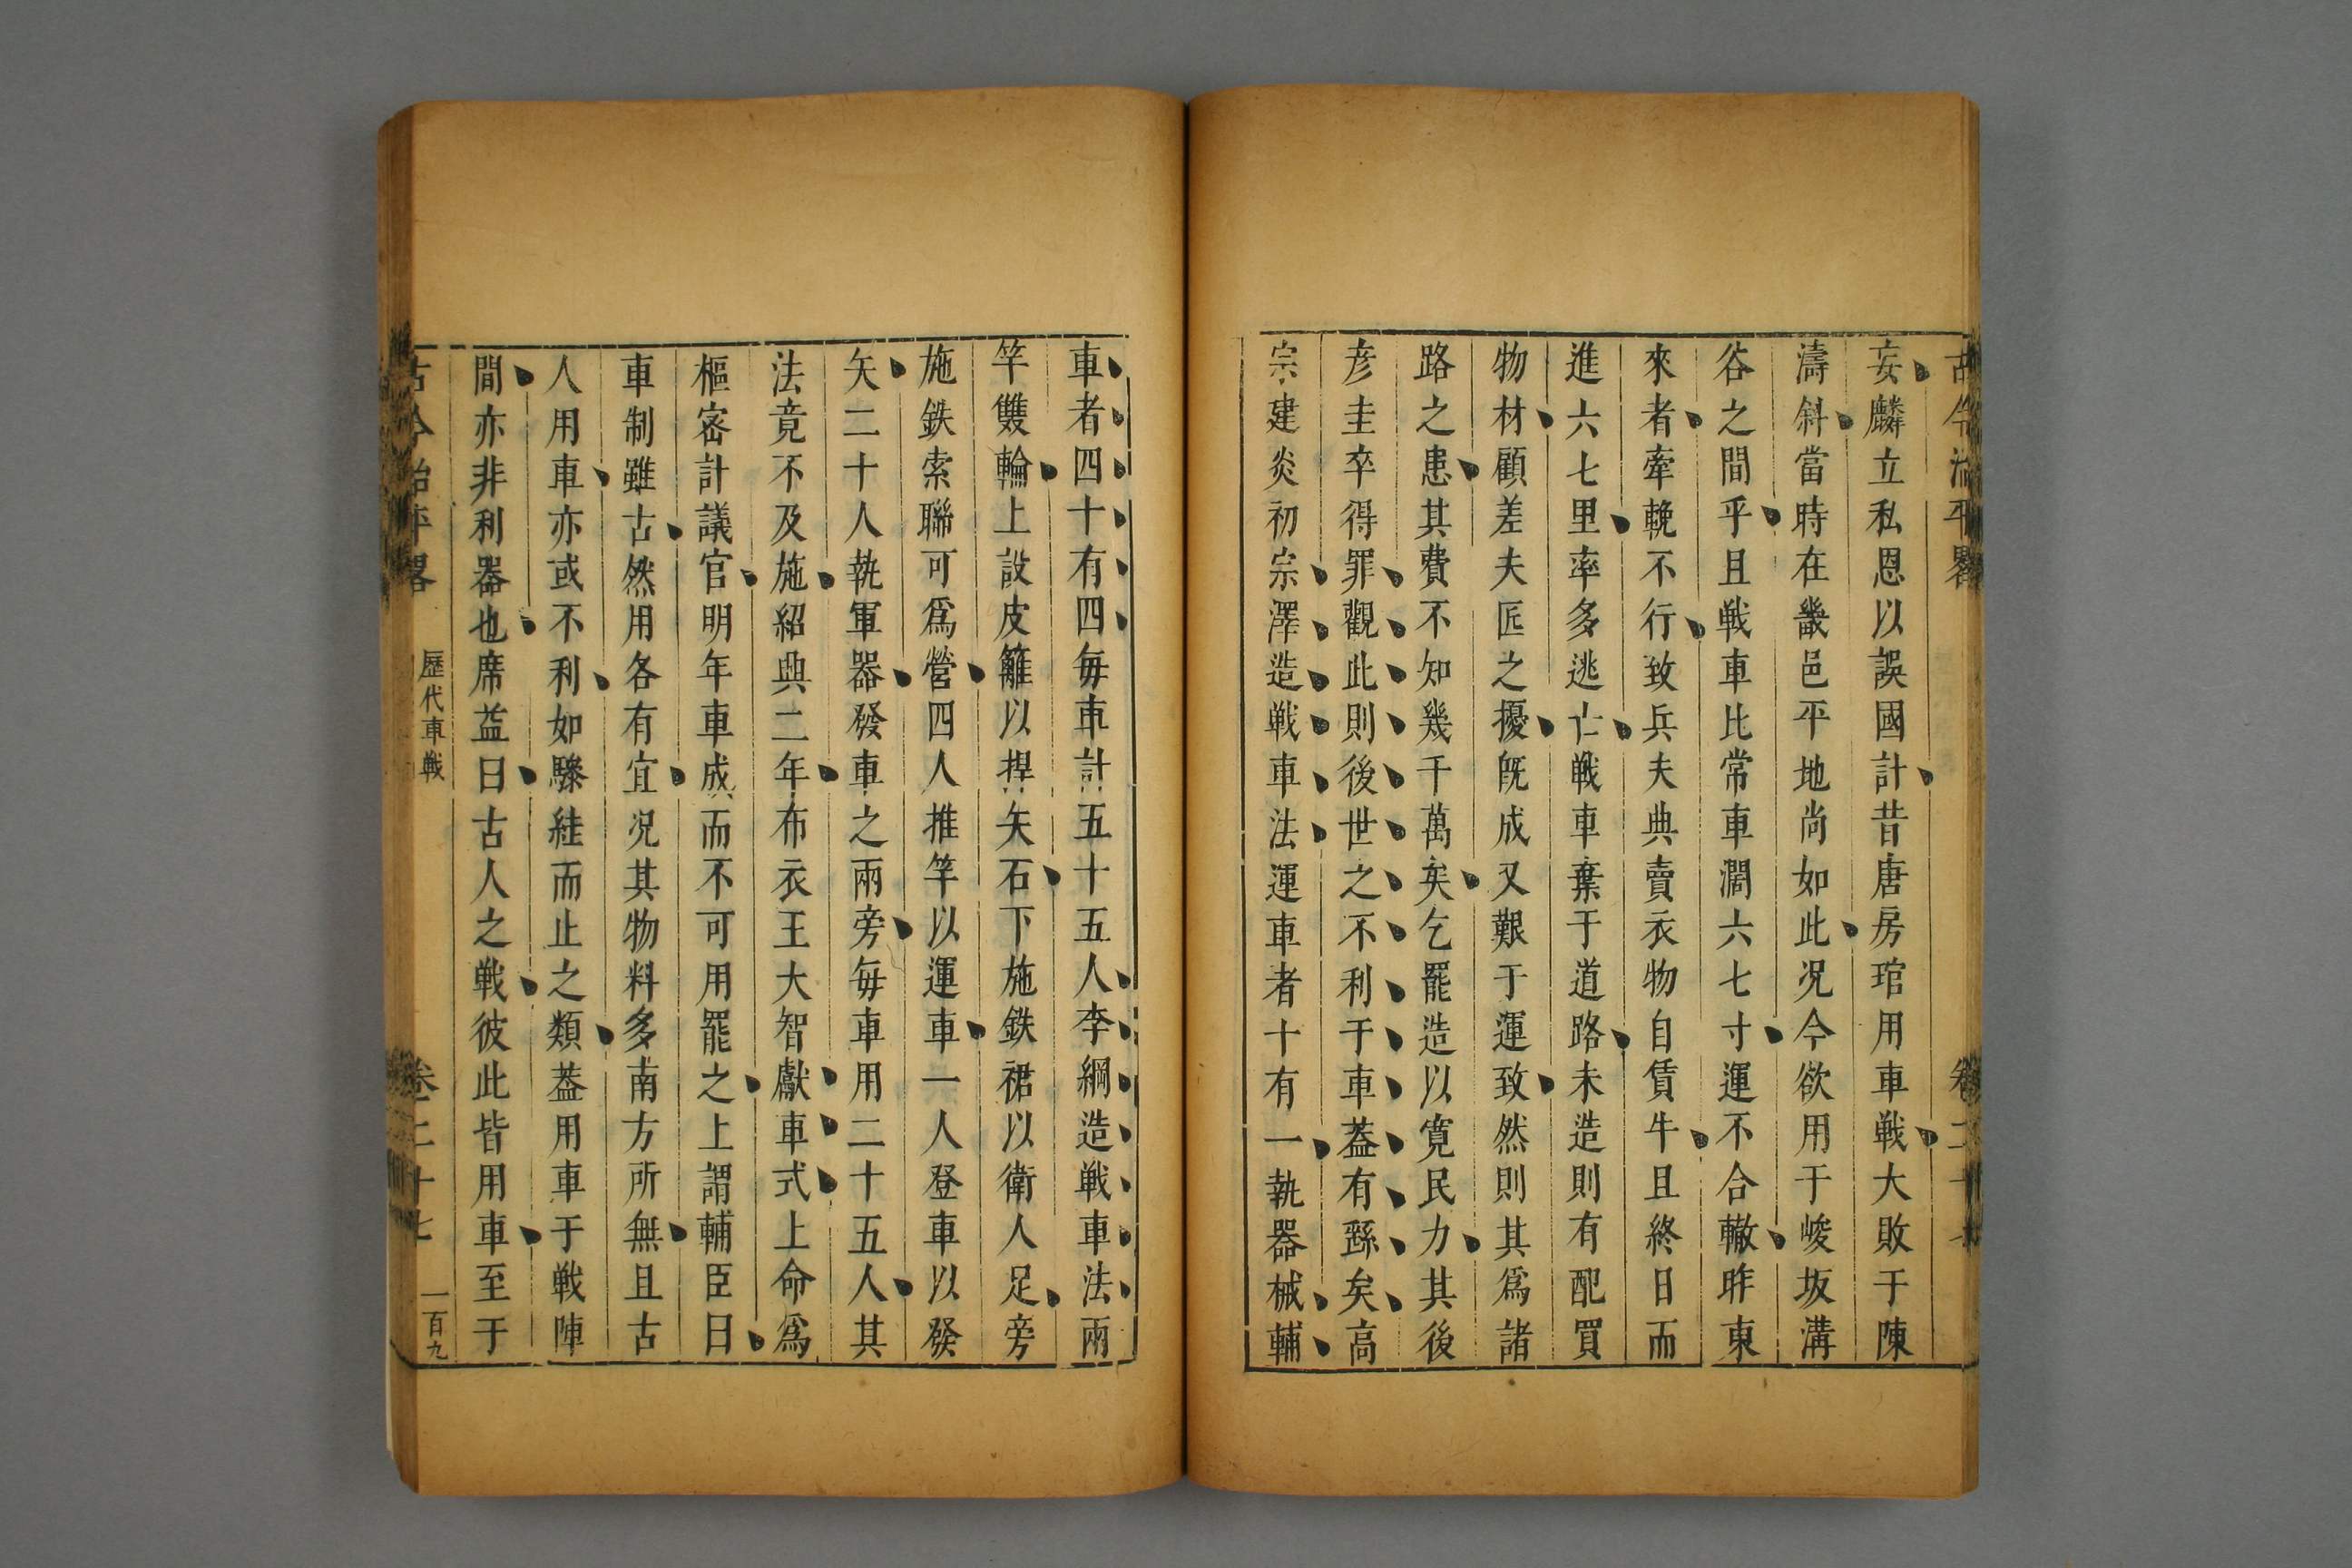 古今治平畧
卷二十七
妄麟立私恩以誤國計昔唐房琯用車戰大敗于陳
濤斜當時在畿邑平地尚如此况今欲用于峻坂溝
谷之間乎且戰車比常車濶六七寸運不合轍昨東
來者牽輓不行致兵夫典賣衣物自賃牛且終日而
進六七里率多逃亡戰車棄于道路未造則有配買
物材顧差夫匠之擾旣成又艱于運致然則其爲諸
路之患其費不知幾千萬矣乞罷造以寬民力其後
彦圭卒得罪觀此則後世之不利于車葢有繇矣高
宗建炎初宗澤造戰車法運車者十有一執器械輔
車者四十有四每車計五十五人李綱造戰車法兩
竿雙輪上設皮籬以捍矢石下施鉄裙以衛人足旁
施鉄索聯可爲營四人推竿以運車一人登車以發
矢二十人執軍器發車之兩旁每車用二十五人其
法竟不及施紹興二年布衣王大智獻車式上命爲
樞密計議官明年車成而不可用罷之上謂輔臣曰
車制雖古然用各有宜况其物料多南方所無且古
人用車亦或不利如驂絓而止之類葢用車于戰陣
間亦非利器也席益曰古人之戰彼此皆用車至于
古今治平畧
歷代車戰
卷二十七
一百九